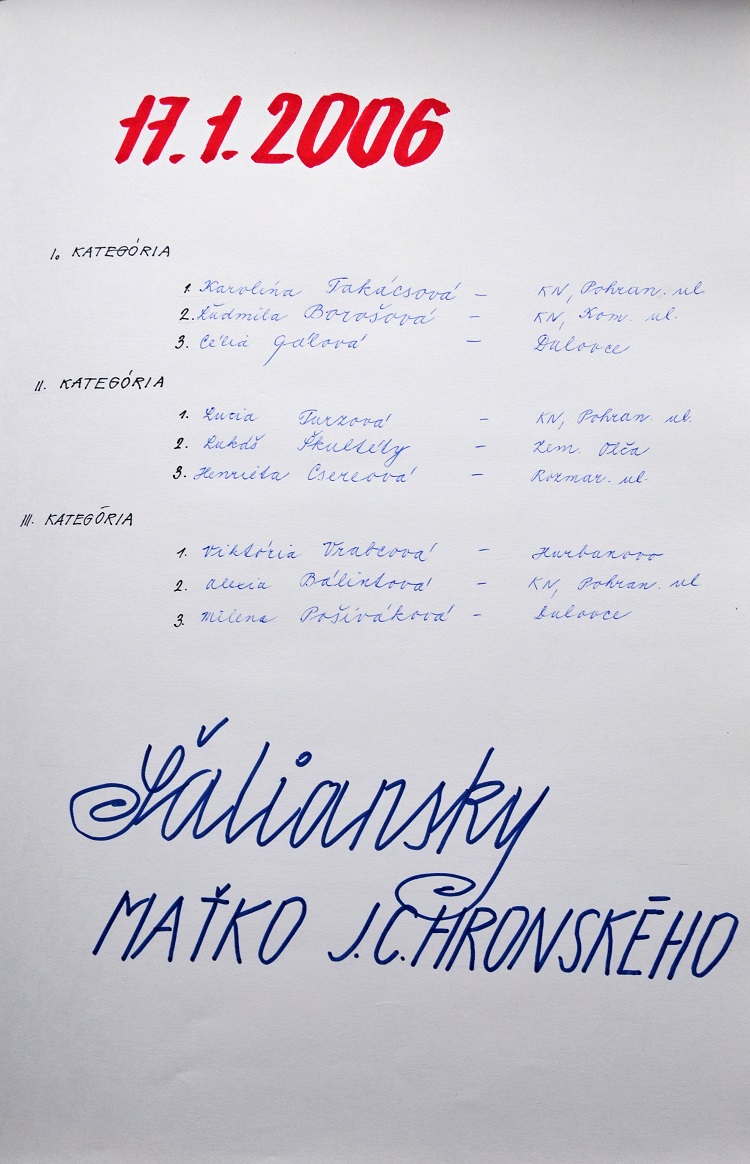 17.1.2006
I. KATEGÓRIA
1. Karolína Takácsová - KN, Pohran. ul
2. Ľudmila Borošová - KN, Kom. ul.
3. Célia Gálová - Dulovce
II. KATEGÓRIA
1. Lucia Turzová - KN, Pohran. ul.
2. Lukáš Škultéty - Zem. Olča
3. Henrieta Csereová - Rozmar. ul.
III. KATEGÓRIA
1. Viktória Vrabcová - Hurbanovo
2. Alexia Bálintová - KN, Pohran. ul
3. Milena Pošiváková - Dulovce
Šáliansky
MAŤKO J.C.HRONSKÉHO